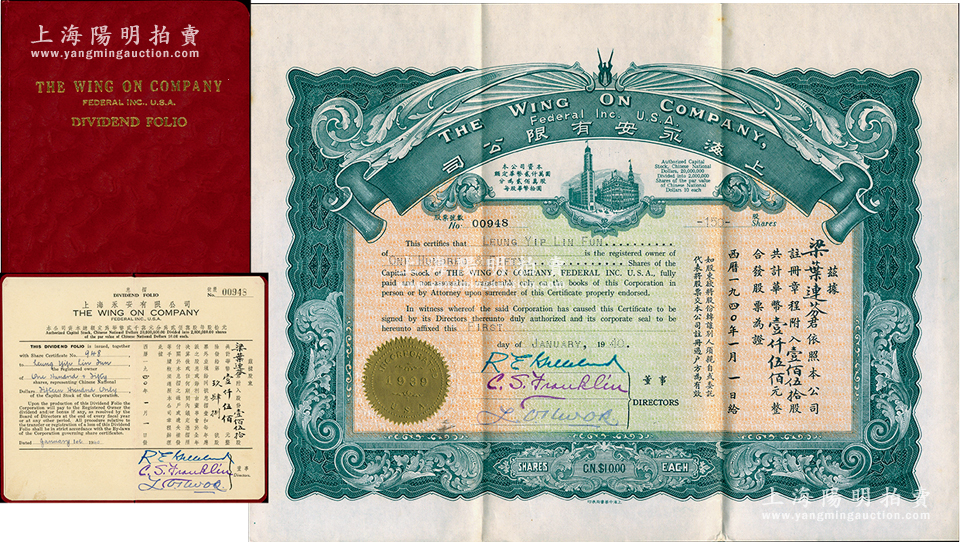 上海陽明拍賣
www.yangmingauction.com
THE WING ON COMPANY
FEDERAL INC., U.S.A.
DIVIDEND FOLIO
DIVIDEND FOLIO
No. 00948
上海永安有限公司
THE WING ON COMPANY
FEDERAL INC., U.S.A.
THIS DIVIDEND FOLIO is issued, together
with Share Certificate No. 948
to Leung Yip Lin Fun
the registered owner
of One Hundred & Fifty
shares, representing Chinese National
Dollars Fifteen Hundred Only
of the Capital Stock of the Corporation.
Upon the production of this Dividend Folio the
Corporation will pay to the Registered Owner the
dividend and/or bonus if any, as resolved by the
Board of Directors at the end of every fiscal year
or at any other period. All procedure relative to
the transfer or registration of a loss of this Dividend
Folio shall be in strict accordance with the By-laws
of the Corporation governing share certificates.
Dated January 1st
梁葉蓮芬
C. S. Franklin
董事
Directors.
THE WING ON COMPANY,
Federal Inc. U.S.A.
上海永安有限公司
本公司資本
額定華幣貳仟萬圓
分為貳佰萬股
每股華幣拾圓
Authorized Capital
Stock, Chinese National
Dollars, 20,000,000
Divided into 2,000,000
Shares of the par value
of Chinese National
Dollars 10 each
股票號數
No. 00948
-150- 股
Shares
This certifies that LEUNG YIP LIN FUN
of is the registered owner of
ONE HUNDRED & FIFTY Shares of the
Capital Stock of THE WING ON COMPANY, FEDERAL INC. U. S. A., fully
paid and non-assessable, transferable only on the books of this Corporation in
person or by Attorney upon surrender of this Certificate properly endorsed.
In witness whereof the said Corporation has caused this Certificate to be
signed by its Directors thereunto duly authorized and its corporate seal to be
hereunto affixed this FIRST
day of JANUARY, 1940.
C. S. Franklin
董事
DIRECTORS
茲據
梁葉蓮芬君依照本公司
註冊章程附入壹佰伍拾股
共計華幣壹仟伍佰元整
合發股票為證
西曆一九四０年一月一日給
如股東欲將股份轉讓別人須親自或委託
代表將股票交本公司註冊過戶方為有效
1930
SHARES C.N. $10.00 EACH
上海陽明拍賣
www.yangmingauction.com